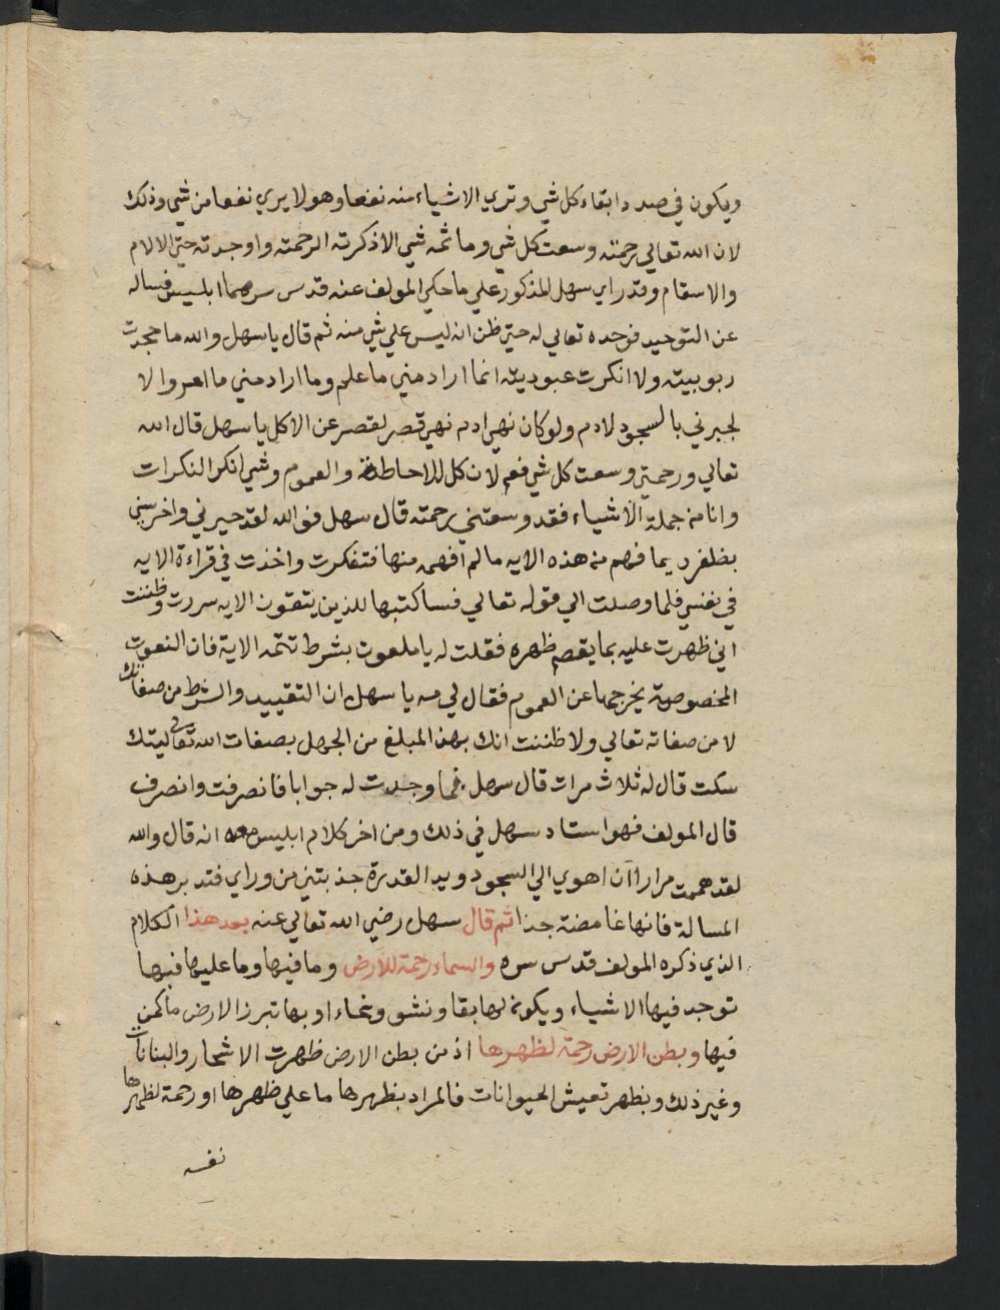 ويكون في صدد ابقاء كل شي وتري الاشياء منه نفعا وهو لا يري نفعا من شي وذلك
لان الله تعالي رحمته وسعت كل شي وما ثمه شي الا ذكرته الرحمته واوجدته حتي الالام
والاسقام وقد راي سهل المذكور علي ما حكي المولف عنه قدس سرهما ابليس فساله
عن التوحيد فوحده تعالي له حتي ظن انه ليس علي شي منه ثم قال يا سهل والله ما جحدت
ربوبيته ولا انكرت عبوديته انما اراد مني ما علم وما اراد مني ما امر والا
لجبرني بالسجود لادم ولو كان نهي ادم نهي قصر لقصر عن الاكل يا سهل قال الله
تعالي ورحمتي وسعت كل شي فعم لان كل للاحاطة والعموم وشي انكر النكرات
وانا من جملة الاشياء فقد وسعتني رحمته قال سهل فوالله لقد حيرني واخرسني
بظفره بما فهم من هذه الايه ما لم افهمه منها فتفكرت واخذت في قراءة الايه
في نفسي فلما وصلت الي قوله تعالي فساكتبها للذين يتقون الايه سررت وظننت
اني ظهرت عليه بما يقصم ظهره فقلت له يا ملعون بشرط تتمه الاية فان النعوت
المخصوصة يخرجها عن العموم فقال لي مه يا سهل ان التقييد والشرط من صفاتك
لا من صفاته تعالي ولا ظننت انك بهذا المبلغ من الجهل بصفات الله تعالي ليتك
سكت قال له ثلاث مرات قال سهل فما وجدت له جوابا فانصرفت وانصرف
قال المولف فهو استاد سهل في ذلك ومن اخر كلام ابليس معه انه قال والله
لقد هممت مرارا ان اهوي الي السجود ويد القدرة جذبتني من وراي فتدبر هذه
المسالة فانها غامضة جدا ثم قال سهل رضي الله تعالي عنه بعد هذا الكلام
الذي ذكره المولف قدس سره والسماء رحمة للارض وما فيها وما عليها فبها
توجد فيها الاشياء ويكون لها بقا ونشو ونماء او بها تبرز الارض ما كمن
فيها وبطن الارض رحمة لظهرها اذ من بطن الارض ظهرت الاشجار والنباتات
وغير ذلك وبظهر تعيش الحيوانات فالمراد بظهرها ما علي ظهرها او رحمة لظهرها
نفسه